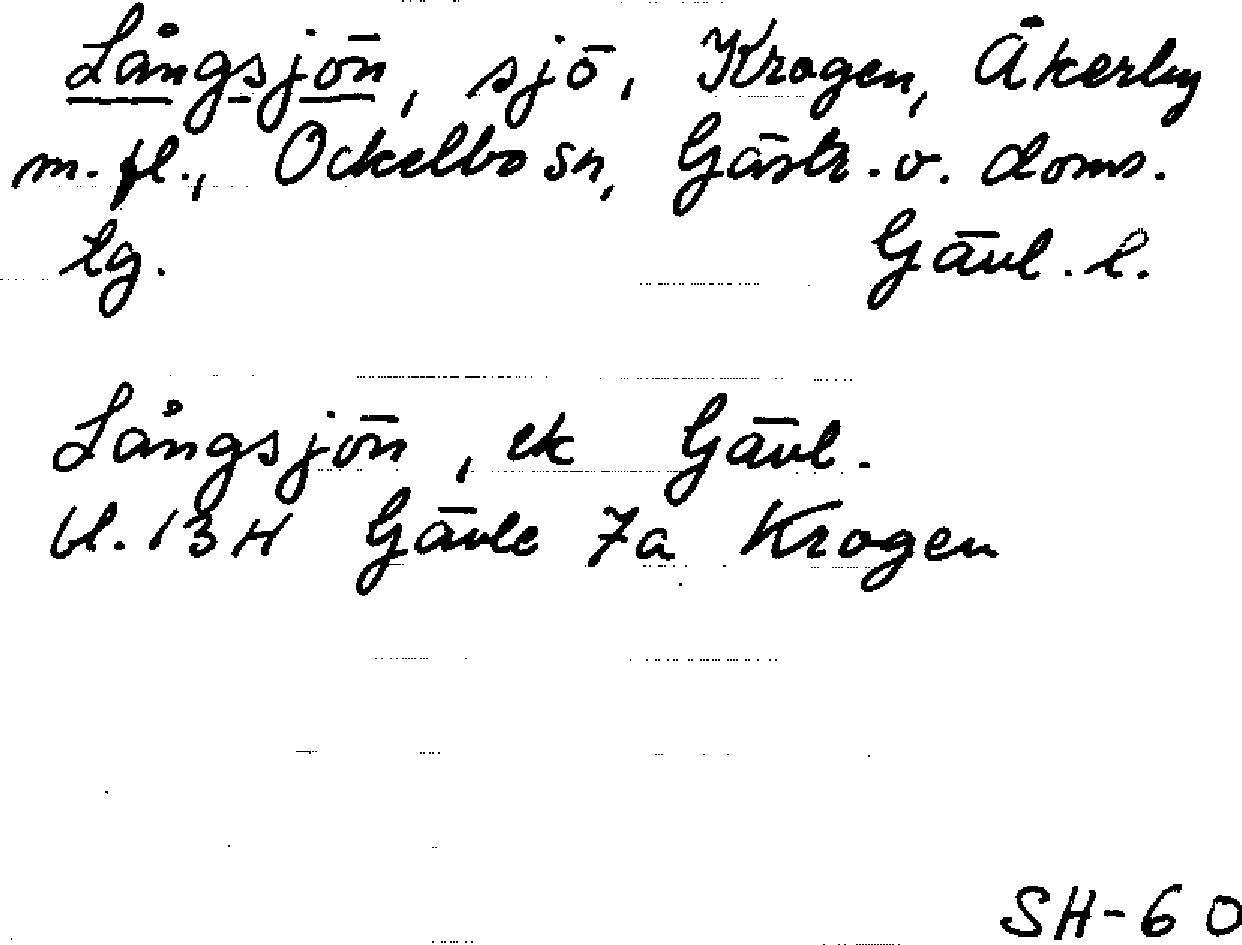 Långsjön, sjö, Krogen, Åkerby
m.fl., Ockelbo sn, Gästr. v. doms.
tg. Gävl. l.
Långsjön, ek Gävl.
bl. 13H Gävle 7a Krogen
SH-60